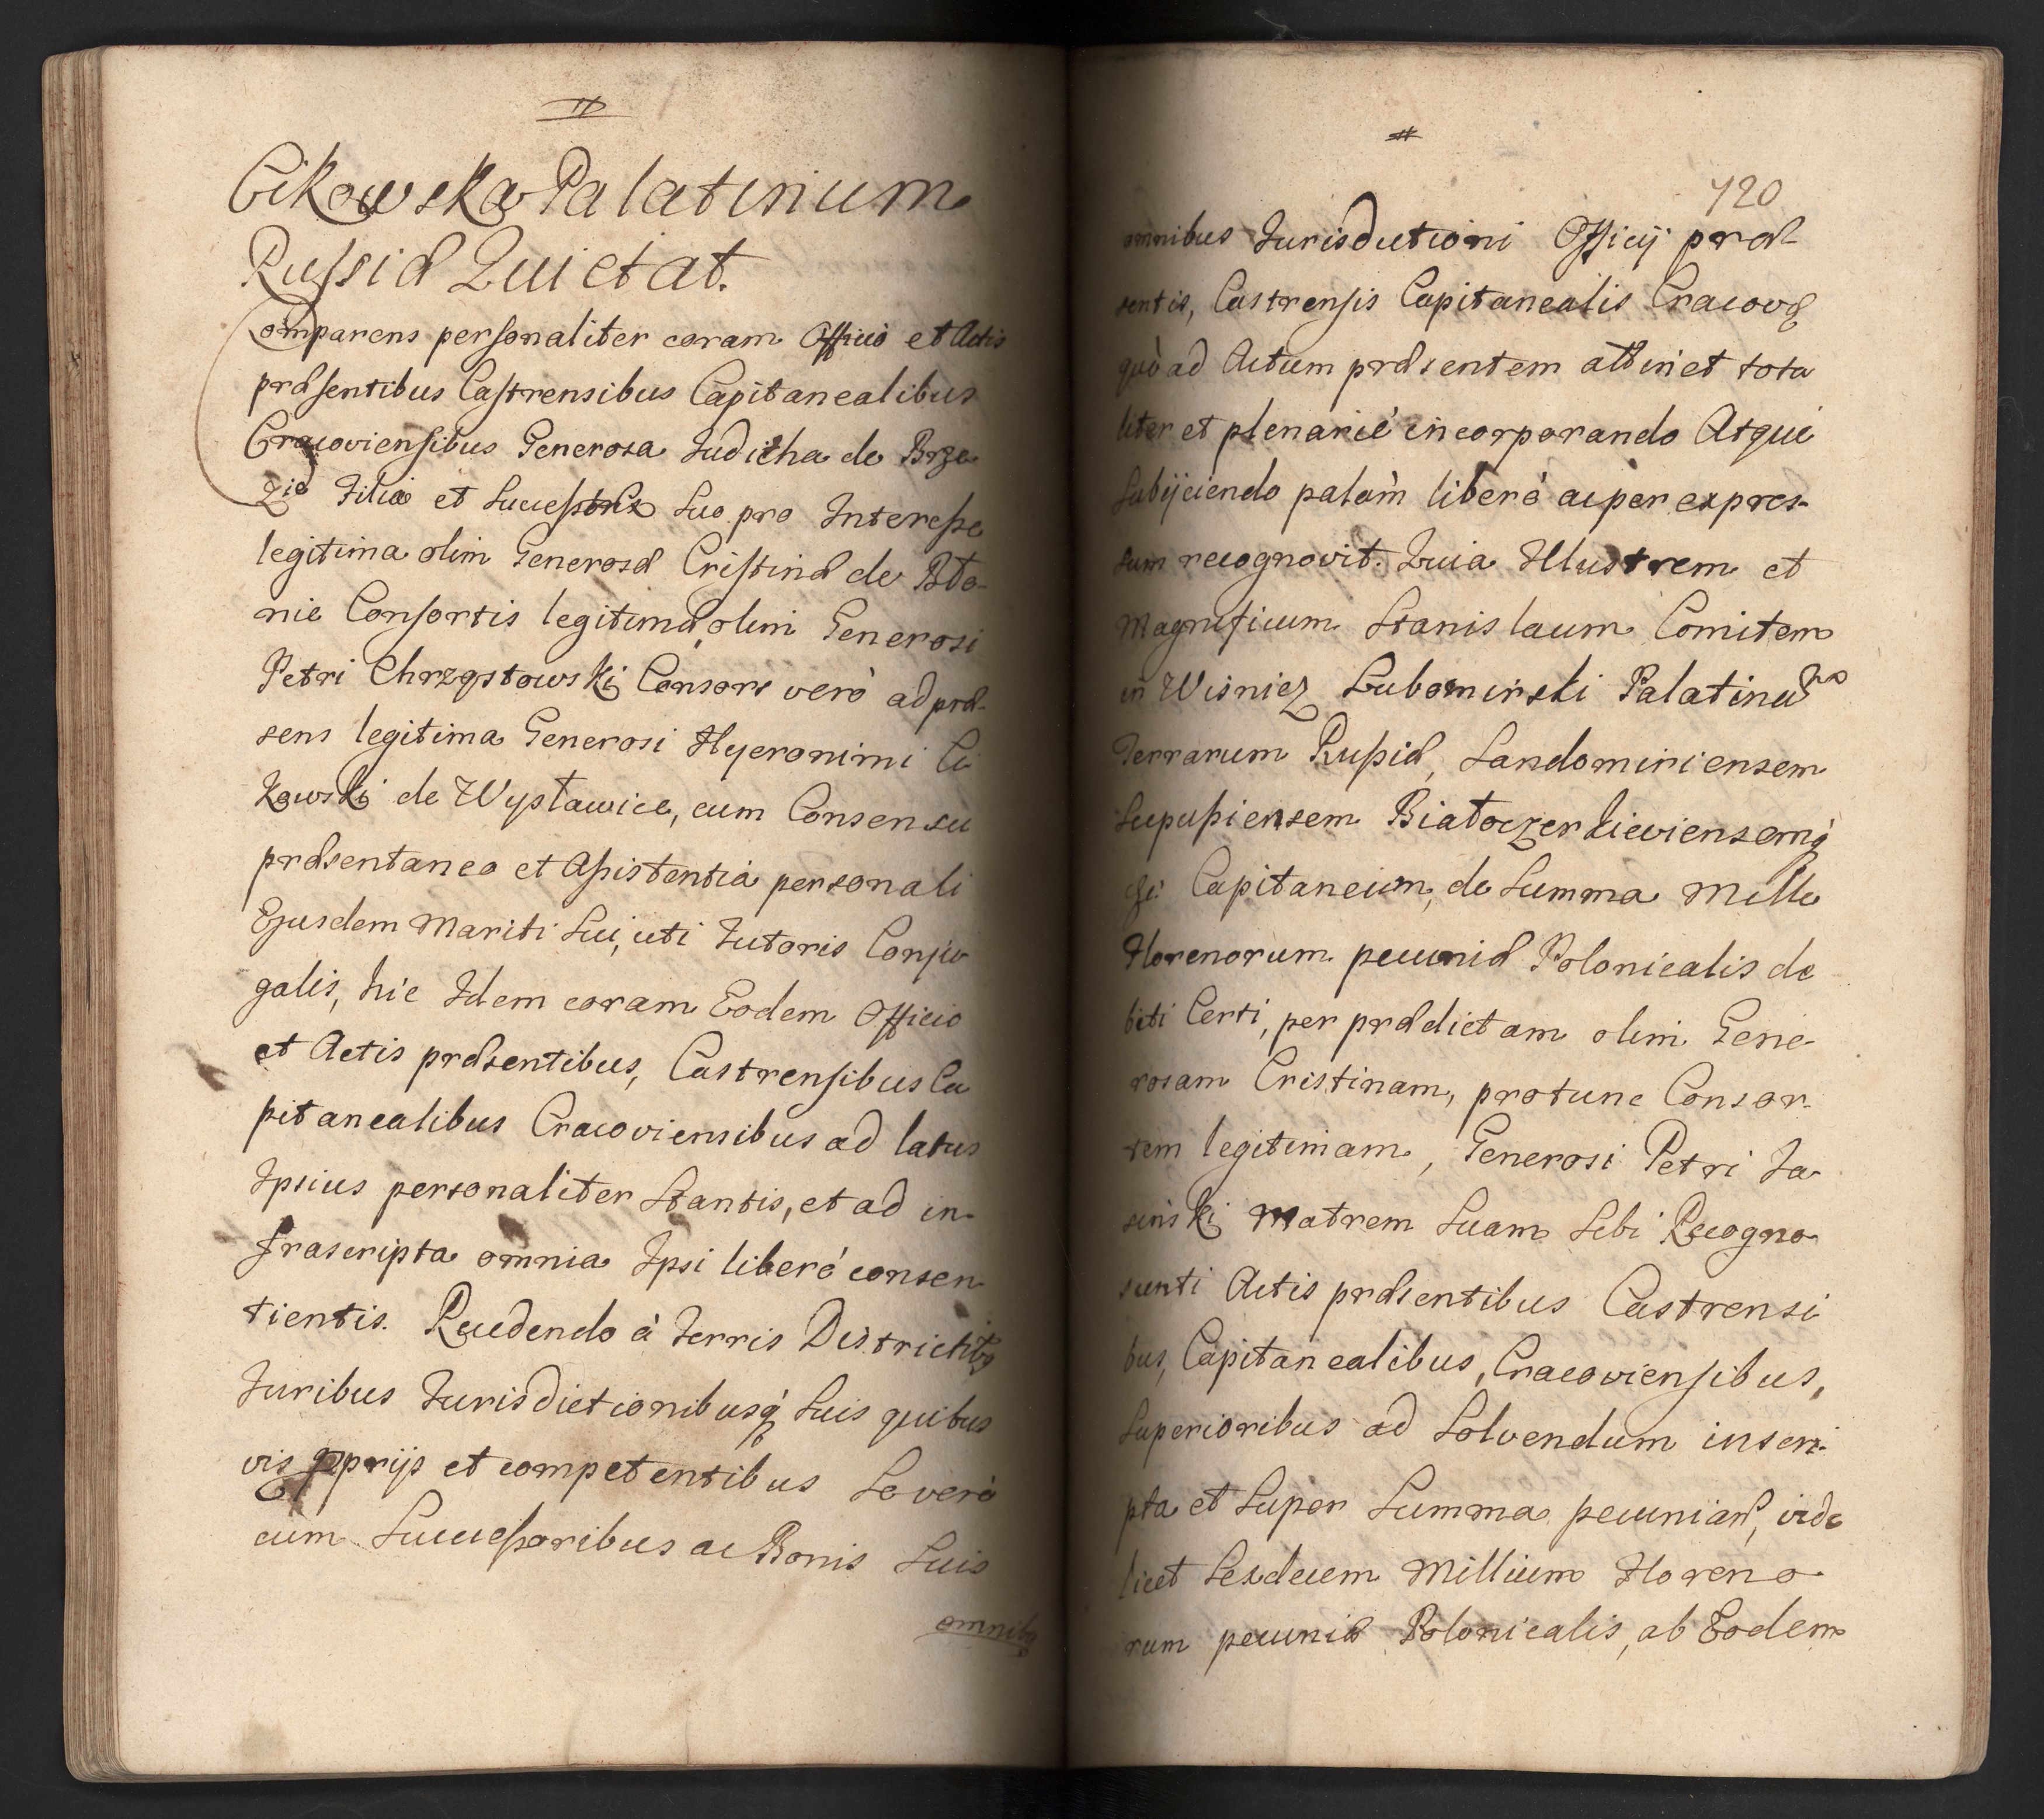 Cikowska Palatinum
Russiæ Quietat.
Comparens personaliter coram Officio et Actis
præsentibus Castrensibus Capitanealibus
Cracoviensibus Generosa Judicha de Brze
zie Filia et Successtrix Suo pro Interesse
legitima olim Generosæ Cristinæ de Bło-
nie Consortis legitimæ, olim Generosi
Petri Chrząstowski, Consors verò ad præ-
sens legitima Generosi Hyeronimi Ci
kowski de Wysławice, cum Consensu
præsentaneo et Assistentiâ personali
Ejusdem Mariti Sui, uti Tutoris Conju
galis, hic Idem coram Eodem Officio
et Actis præsentibus, Castrensibus Ca
pitanealibus Cracoviensibus ad latus
Ipsius personaliter Stantis, et ad in-
frascripta omnia Ipsi liberè consen-
tientis. Recedendo à Terris Districtibq
Juribus Jurisdictionibusq Suis quibus
vis pprijs et competentibus Se verò
cum Successoribus ac Bonis Suis
omnibq
#
720
omnibus Jurisdictioni Officij præ-
sentis, Castrensis Capitanealis Cracov
quò ad Actum præsentem attinet tota
liter et plenariè incorporando Atque
Subijciendo palàm liberè ac per expres-
sum recognovit. Quia Illustrem et
Magnificum Stanislaum Comitem
in Wisnicz Lubomirski Palatinum
Terrarum Russiæ, Sandomiriensem
Scepusiensem Białoczerkieviensemq
Capitaneum, de Summa Mille
Florenorum pecuniæ Polonicalis de
biti Certi, per prædictam olim Gene-
rosam Cristinam, protunc Consor-
tem legitimam, Generosi Petri Ja
sinski Matrem Suam Sibi Recogno
scenti Actis præsentibus Castrensi
bus, Capitanealibus, Cracoviensibus,
Superioribus ad Solvendum inscri-
pta et Super Summa pecuniaræ, vide
licet Sexdecem Millium Floreno
rum pecuniæ Polonicalis, ab Eodem